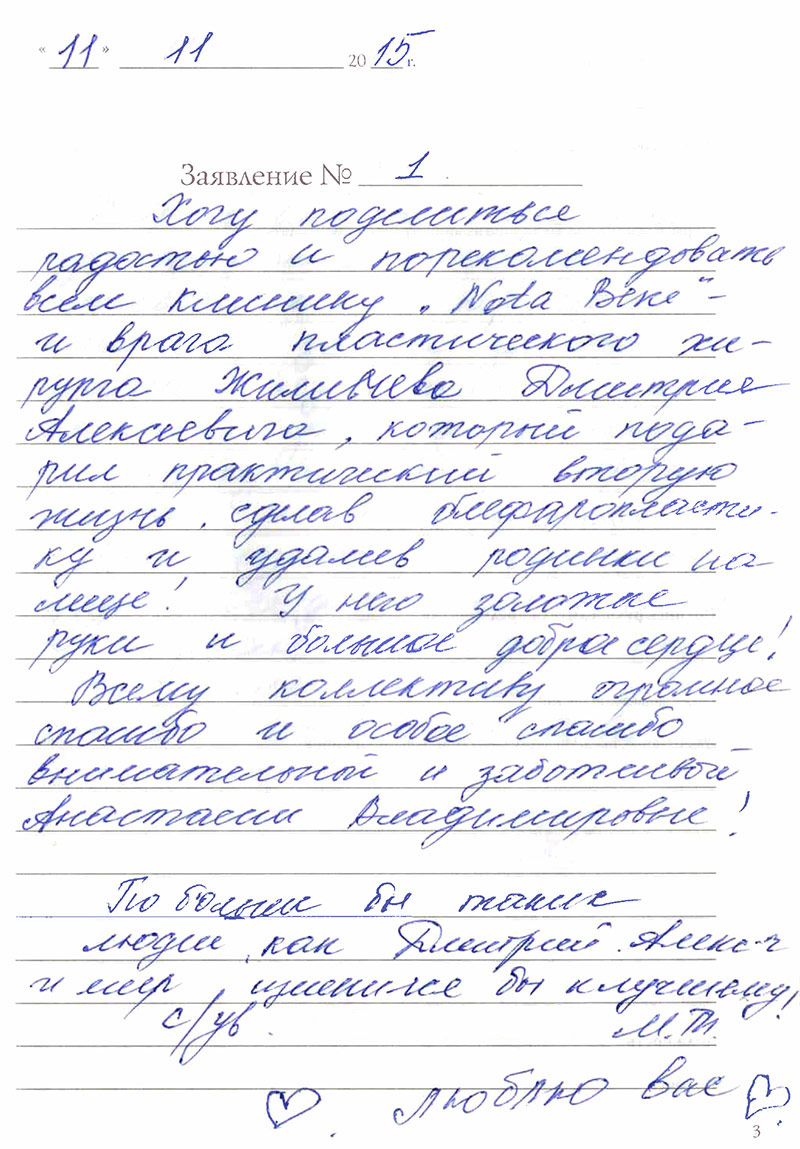 "11" 11 2015 г.
Заявление № 1
Хочу поделиться
радостью и порекомендовать
всем клинику „Nota Bene" –
и врача пластического хи-
рурга Дмитрия
Алексеевича, который пода-
рил практический вторую
жизнь, сделав блефаропласти-
ку и удалив родинки на
лице! У него золотые
руки и большое доброе сердце!
Всему коллективу огромное
спасибо и особое спасибо
внимательной и заботливой
Анастасии Владимировне!
Побольше бы таких
людей, как Дмитрий Алекс-ч
и мир изменился бы к лучшему!
с/ув. М.Т.
Люблю Вас
3